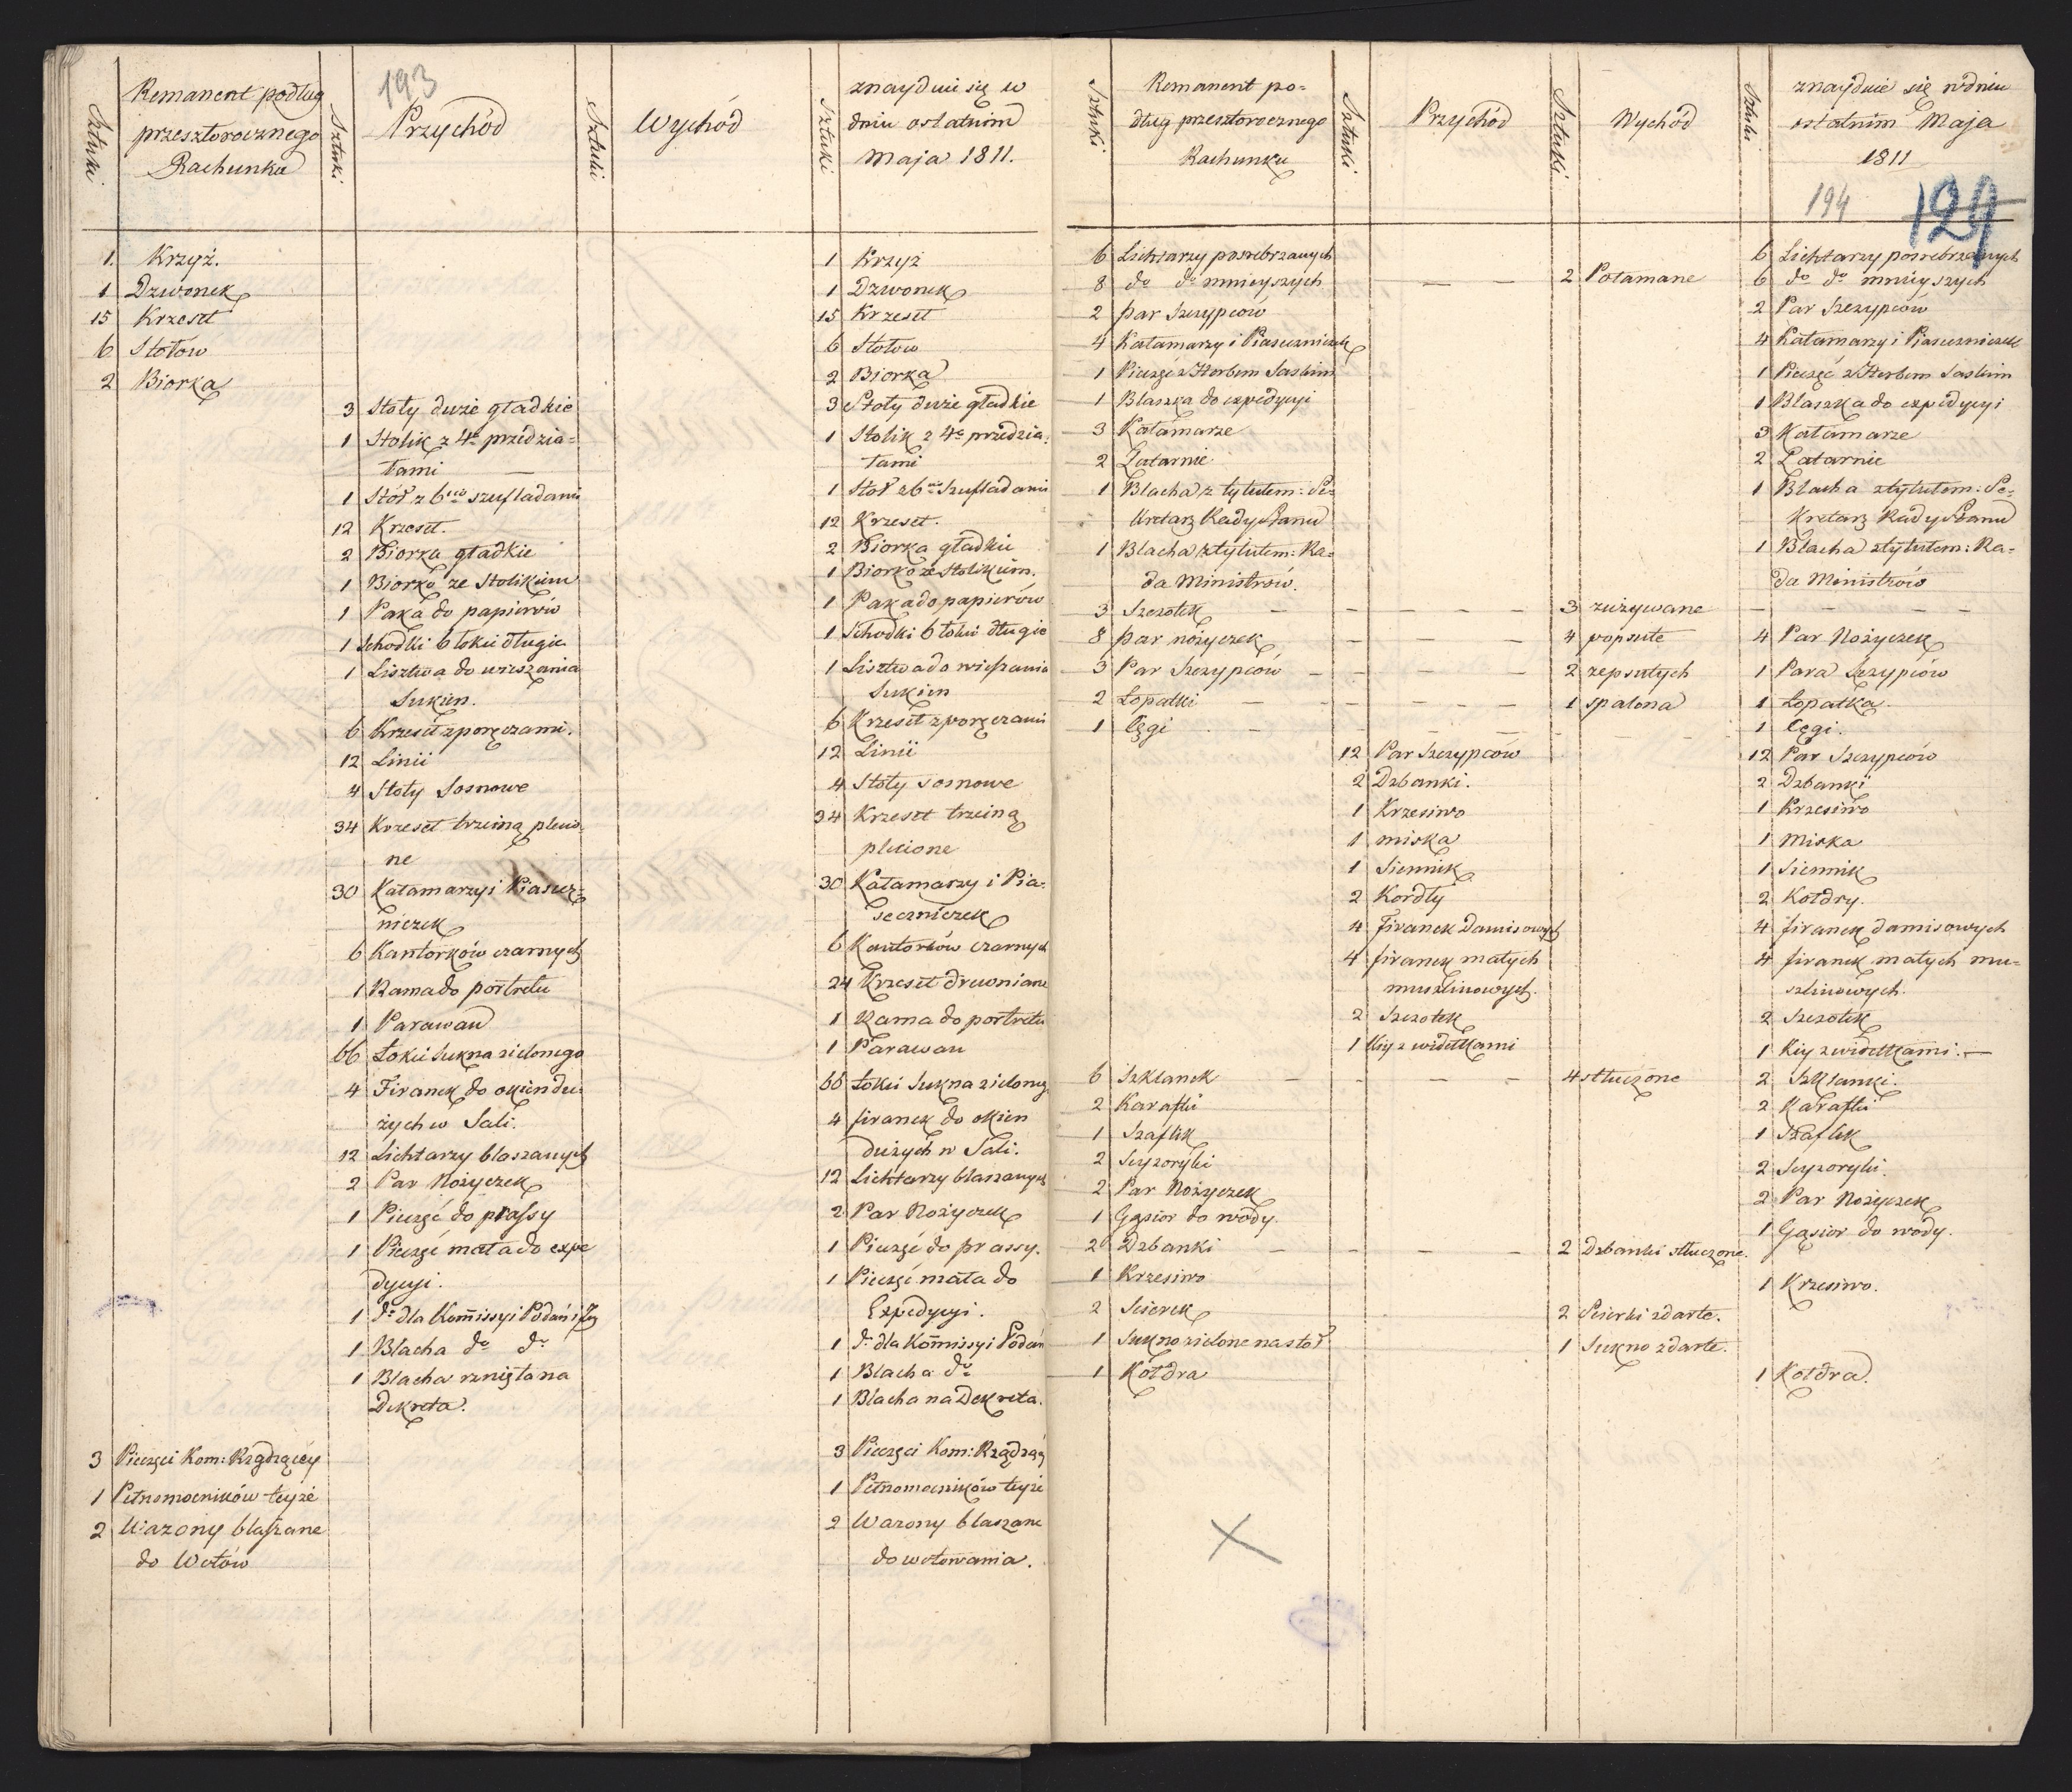 193
Sztuki
Remanent podług
przeszłorocznego
Rachunku
Sztuki
Przychód
Sztuki
Wychód
Sztuki
znayduie się w
dniu ostatnim
Maja 1811.
1. Krzyż. 1 Krzyż
1 Dzwonek 1 Dzwonek
15 Krzeseł 15 Krzeseł
6 Stołów 6 Stołow
2 Biorka 2 Biorka
3 Stoły duże gładkie 3 Stoły duże gładkie
1 Stolik z 4a przedzia= 1 Stolik z 4a przedzia=
łami — łami
1 Stół z 6cio szufladami 1 Stoł z 6cio Szufladami
12 Krzeseł. 12 Krzeseł.
2 Biorka gładkie 2 Biorka gładkie
1 Biorko ze Stolikiem 1 Biorko ze Stolikiem.
1 Paka do papierów 1 Paka do papierów
1 Schodki 6 łokci długie 1 Schodki 6 łokci długie
1 Lisztwa do wieszania 1 Lisztwa do wieszania
Sukien. Sukien
6 Krzeseł z poręczami. 6 Krzeseł z poręczami
12 Linii 12 Linii
4 Stoły Sosnowe 4 Stoły Sosnowe
34 Krzeseł trzciną plecio= 34 Krzeseł trzciną
ne plecione
30 Kałamarzy i Piasecz= 30 Kałamarzy i Pia=
niczek seczniczek
6 Kantorków czarnych 6 Kantorków czarnych
1 Rama do portretu 24 Krzeseł drewniane
1 Parawan 1 Rama do portretu
66 Łokci Sukna zielonego 1 Parawan
4 Firanek do okien du= 66 Łokci Sukna zielong
żych w Sali. 4 firanek do okien
12 Lichtarzy blaszanych dużych w Sali.
2 Par Nożyczek 12 Lichtarzy blaszanych
1 Pieczęć do prassy 2 Par Nożyczek
1 Pieczęć mała do expe 1 Pieczęć do prassy.
dycyi. 1 Pieczęć mała do
Expedycyi.
1 do dla Kommissyi Podań i 1 do dla Kommissyi Podań
1 Blacha do do 1 Blacha do
1 Blacha rznięta na 1 Blacha na Dekreta.
Dekreta.
3 Pieczęci Kom: Rządzący 3 Pieczęci Kom: Rządzą
1 Pełnomocników teyże 1 Pełnomocników teyże
2 Wazony blaszane 2 Wazony blaszane
do Wotów do wotowania.
Sztuki
Remanent po=
dług przeszłorocznego
Rachunku
Sztuki
Przychód
Sztuki
Wychód
Sztuki
znayduie się w dniu
ostatnim Maja
1811
194 129
6 Lichtarzy posrebrzanych 6 Lichtarzy posrebrzanych
8 do do mnieyszych — — 2 Połamane 6 do do mnieyszych
2 par Szczypców 2 Par Szczypców
4 Kałamarzy i Piaseczniczek 4 Kałamarzy i Piaseczniczek
1 Pieczęć z Herbem Saskim 1 Pieczęć z Herbem Saskim
1 Blaszka do expedycyi 1 Blaszka do expedycyi
3 Kałamarze 3 Kałamarze
2 Latarnie 2 Latarnie
1 Blacha z tytułem: Se= 1 Blacha z tytułem: Se=
kretarz Rady Stanu kretarz Rady Stanu
1 Blacha z tytułem: Ra= 1 Blacha z tytułem: Ra=
da Ministrów. da Ministrów
3 Szczotek — — — — 3 zużywane — — — —
8 par nożyczek — — — — 4 popsute 4 Par Nożyczek
3 Par Szczypców — — — — 2 zepsutych 1 Para Szczypców
2 Łopatki — — — — 1 spalona 1 Łopatka.
1 Cęgi — — — — 1 Cęgi.
12 Par Szczypców 12 Par Szczypców
2 Dzbanki. 2 Dzbanki
1 Krzesiwo 1 Krzesiwo
1 miska 1 Miska
1 Siennik 1 Siennik
2 Kordły 2 Kołdry.
4 firanek Damisowych 4 firanek damisowych
4 firanek małych 4 firanek małych mu=
muszlinowych. szlinowych.
2 Szczotek 2 Szczotek
1 Kiy z widełkami 1 Kiy z widełkami. —
6 Szklanek — — — — 4 stłuczone 2 Szklanki.
2 Karafki 2 Karafki
1 Szaflik 1 Szaflik
2 Scyzoryki 2 Scyzoryki
2 Par Nożyczek 2 Par Nożyczek
1 Gąsior do wody. 1 Gąsior do wody.
2 Dzbanki — — — — 2 Dzbanki stłuczone.
1 Krzesiwo 1 Krzesiwo.
2 Scierek 2 Scierki zdarte.
1 Sukno zielone na stoł 1 Sukno zdarte.
1 Kołdra 1 Kołdra.